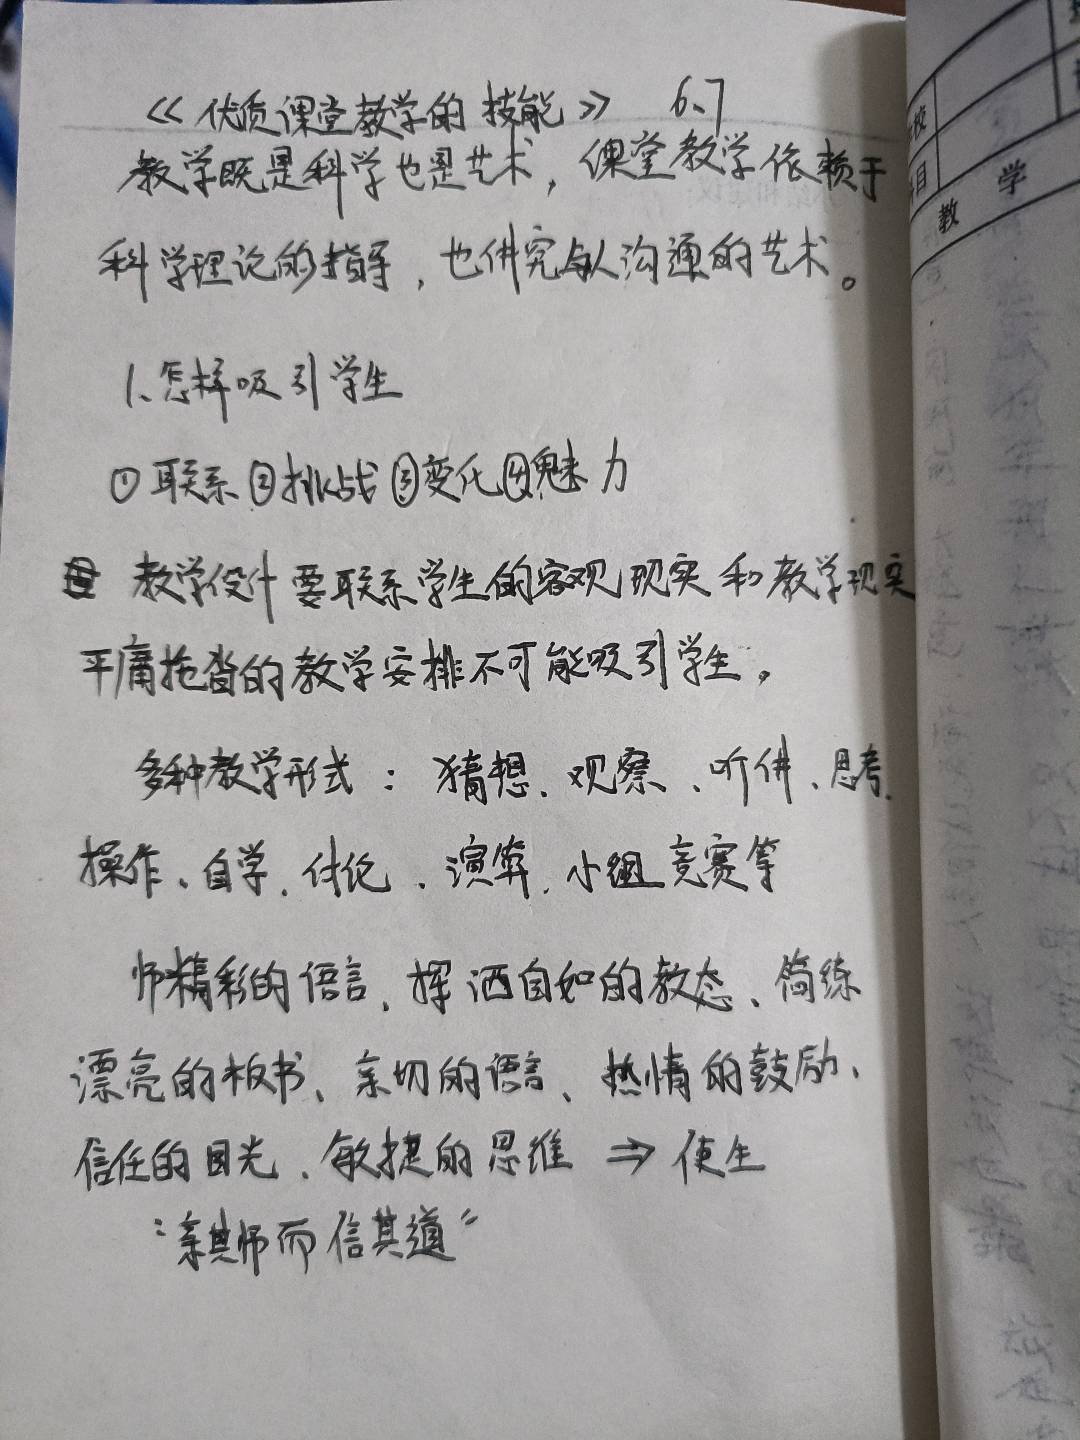 《优质课堂教学的技能》 6.7
教学既是科学也是艺术，课堂教学依赖于
科学理论的指导，也讲究与人沟通的艺术。
1、怎样吸引学生
①联系②挑战③变化④魅力
教学设计要联系学生的客观现实和教学现实
平庸拖沓的教学安排不可能吸引学生。
多种教学形式：猜想、观察、听讲、思考、
操作、自学、讨论、演算、小组竞赛等
师精彩的语言、挥洒自如的教态、简练
漂亮的板书、亲切的语言、热情的鼓励、
信任的目光、敏捷的思维 ⇒ 使生
“亲其师而信其道”
校
目
教 学